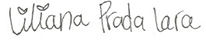 Liliana Prada Lara